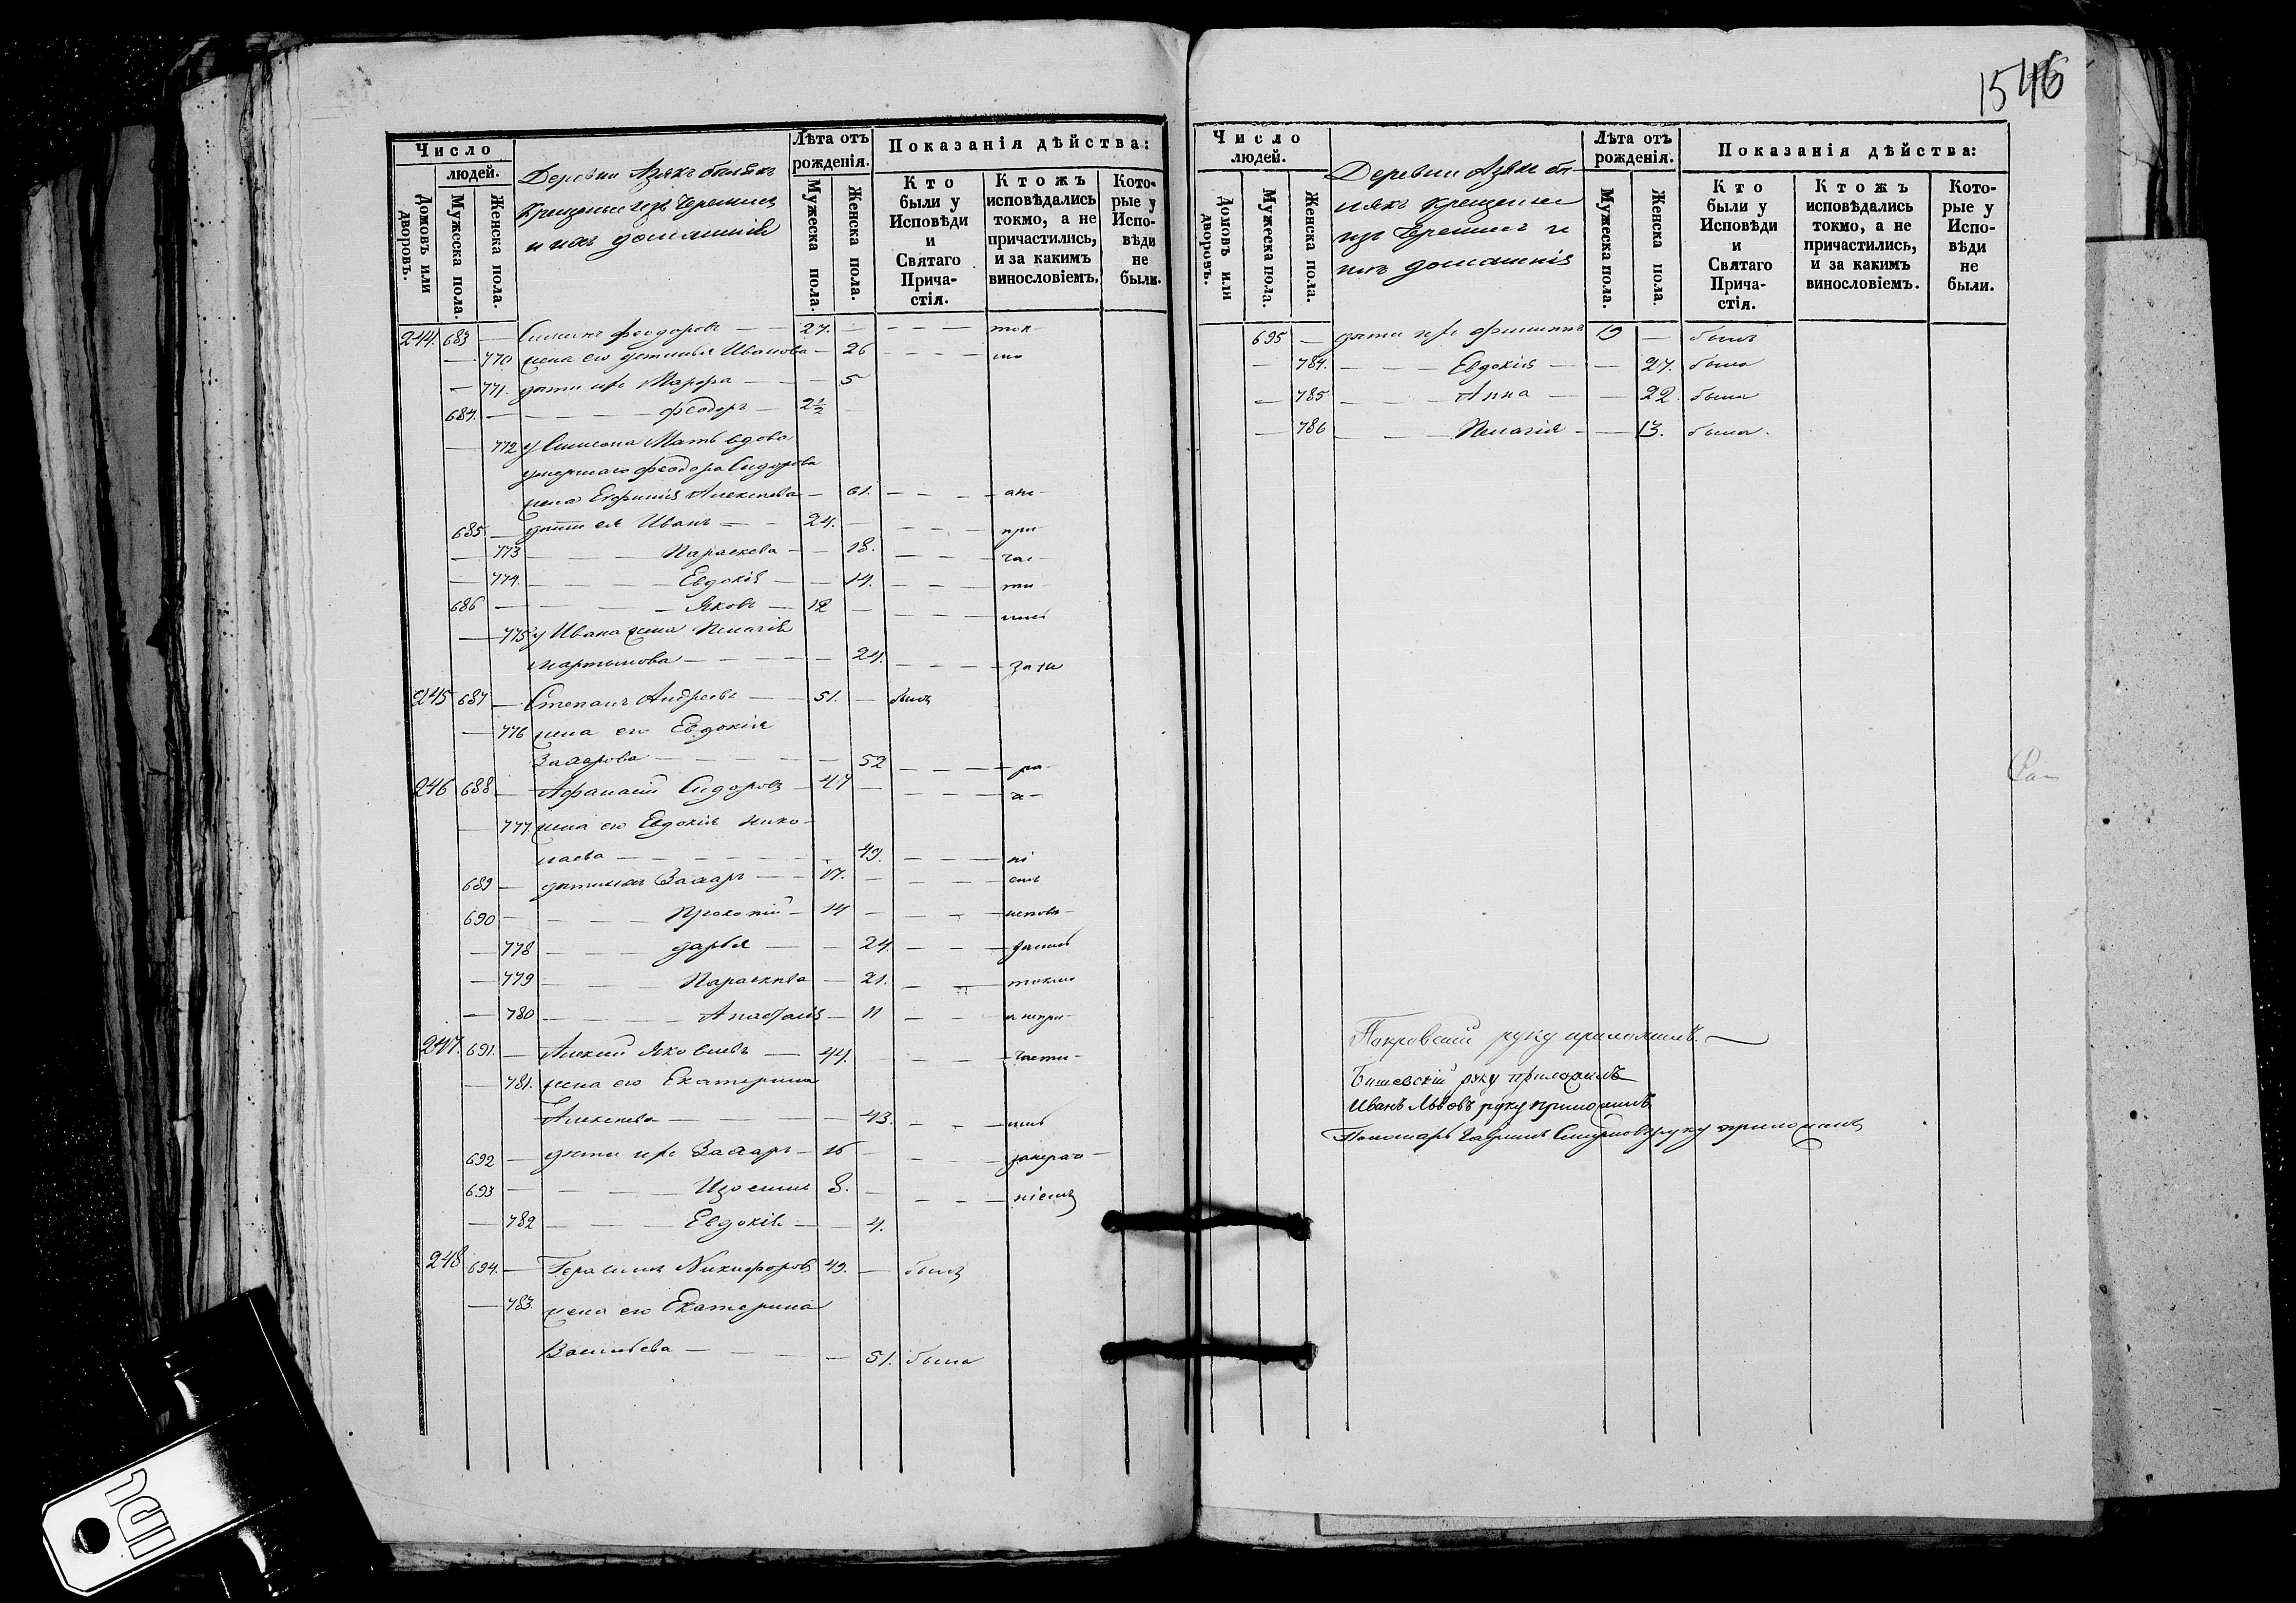 1546
Число
людей.
Домовъ или дворовъ.
Мужеска пола.
Женска пола.
Деревни Азякъ
крещеные изъ Черемисъ
и ихъ домашнія
Лѣта отъ рожденія.
Мужеска пола.
Женска пола.
Показанія дѣйства:
Кто были у Исповѣди и Святаго Причастія.
Ктожъ исповѣдались токмо, а не причастились, и за какимъ винословіемъ.
Которые у Исповѣди не были.
244. 683 — Симеонъ Феодоровъ — 27. — — — ток-
— 770 жена его Устинья Иванова — 26 — — — мо
— 771. дѣти ихъ Марфа — — 5
684. — — — Феодоръ — 2½ —
— 772 у Симеона Мать вдова
умершаго Феодора Сидорова
жена Евфимія Алексѣева — 61. — — — ане-
685. — дѣти ея Иванъ — 24. — — — при-
— 773 — — Параскева — — 18. — — — час-
— 774. — — — Евдокія — — 14. — — — ти-
686 — — — Яковъ — 12 — — — лись
— 775 у Ивана жена Пелагія
Мартынова — — — 24. — — — за не
245 687 — Степанъ Андреевъ — 51. — былъ
— 776 жена его Евдокія
Захарова — — — 52 — — — ра-
246 688. — Афанасій Сидоровъ — 47 — — — че-
— 777. жена его Евдокія Нико-
лаева — — — 49. — — — ні
689 — дѣти ихъ Захаръ — 17. — — — емъ
690 — — — Прокопій — 14 — — — исповѣ-
— 778 — — — Дарья — — 24. — — — дались
— 779 — — Параскева — 21. — — токмо
— 780 — — — Анастасія — 11 — — а непри-
247. 691. — Алексій Яковлевъ — 44. — — — части-
— 781. жена его Екатерина
Алексѣева — — — 43. — — — лись
692 — дѣти ихъ Захаръ — 16 — — —
693 — — — Изосимъ 8. — — — ніемъ
— 782 — — — Евдокія — — 4.
248 694. — Герасимъ Никифоровъ 49. — былъ
— 783. жена его Екатерина
Васильева — — — 51. была
Число
людей.
Домовъ или дворовъ.
Мужеска пола.
Женска пола.
Деревни Азякъ
крещеные
изъ Черемисъ и
ихъ домашнія
Лѣта отъ рожденія.
Мужеска пола.
Женска пола.
Показанія дѣйства:
Кто были у Исповѣди и Святаго Причастія.
Ктожъ исповѣдались токмо, а не причастились, и за какимъ винословіемъ.
Которые у Исповѣди не были.
695 — дѣти ихъ Филиппъ 19 — былъ
— 784. — — — Евдокія — — 27. была
— 785 — — — Анна — — 22. была
— 786 — — — Пелагія — — 13. была.
Покровскій руку приложилъ. —
руку приложилъ
Иванъ Львовъ руку приложилъ
Пономарь Гавріилъ Смирновъ руку приложилъ